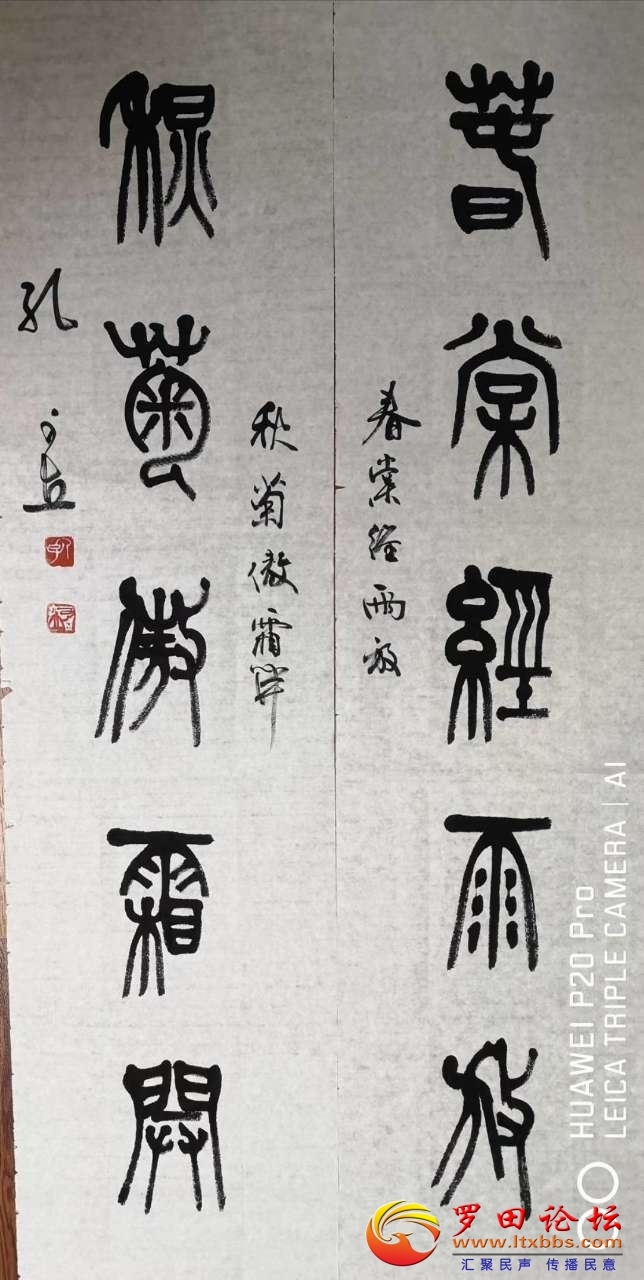 春棠經雨放
春棠经雨放
秋菊傲霜開
秋菊傲霜开
孔
HUAWEI P20 Pro
LEICA TRIPLE CAMERA | AI
罗田论坛
www.ltxbbs.com
汇聚民声 传播民意